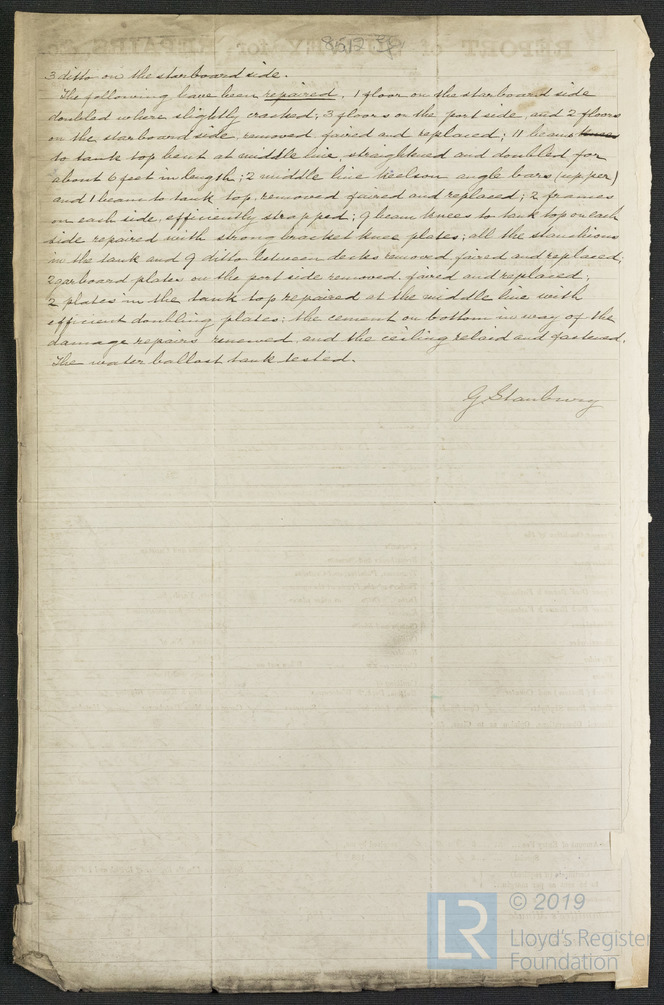 3 ditto on the starboard side.
The following have been repaired. 1 floor on the starboard side
doubled where slightly cracked; 3 floors on the port side, and 2 floors
on the starboard side, removed faired and replaced; 11 beams knees
to tank top bent at middle line, straightened and doubled for
about 6 feet in length; 2 middle line keelson angle bars (upper)
and 1 beam to tank top, removed faired and replaced; 2 frames
on each side, efficiently strapped; 9 beam knees to tank top on each
side repaired with strong bracket knee plates; all the stanchions
in the tank and 9 ditto between decks removed, faired and replaced;
2 garboard plates on the port side removed faired and replaced;
2 plates in the tank top repaired at the middle line with
efficient doubling plates; the cement on bottom in way of the
damage repairs renewed, and the ceiling relaid and fastened.
The water ballast tank tested.
G. Stanbury
© 2019
LR
Lloyd's Register
Foundation